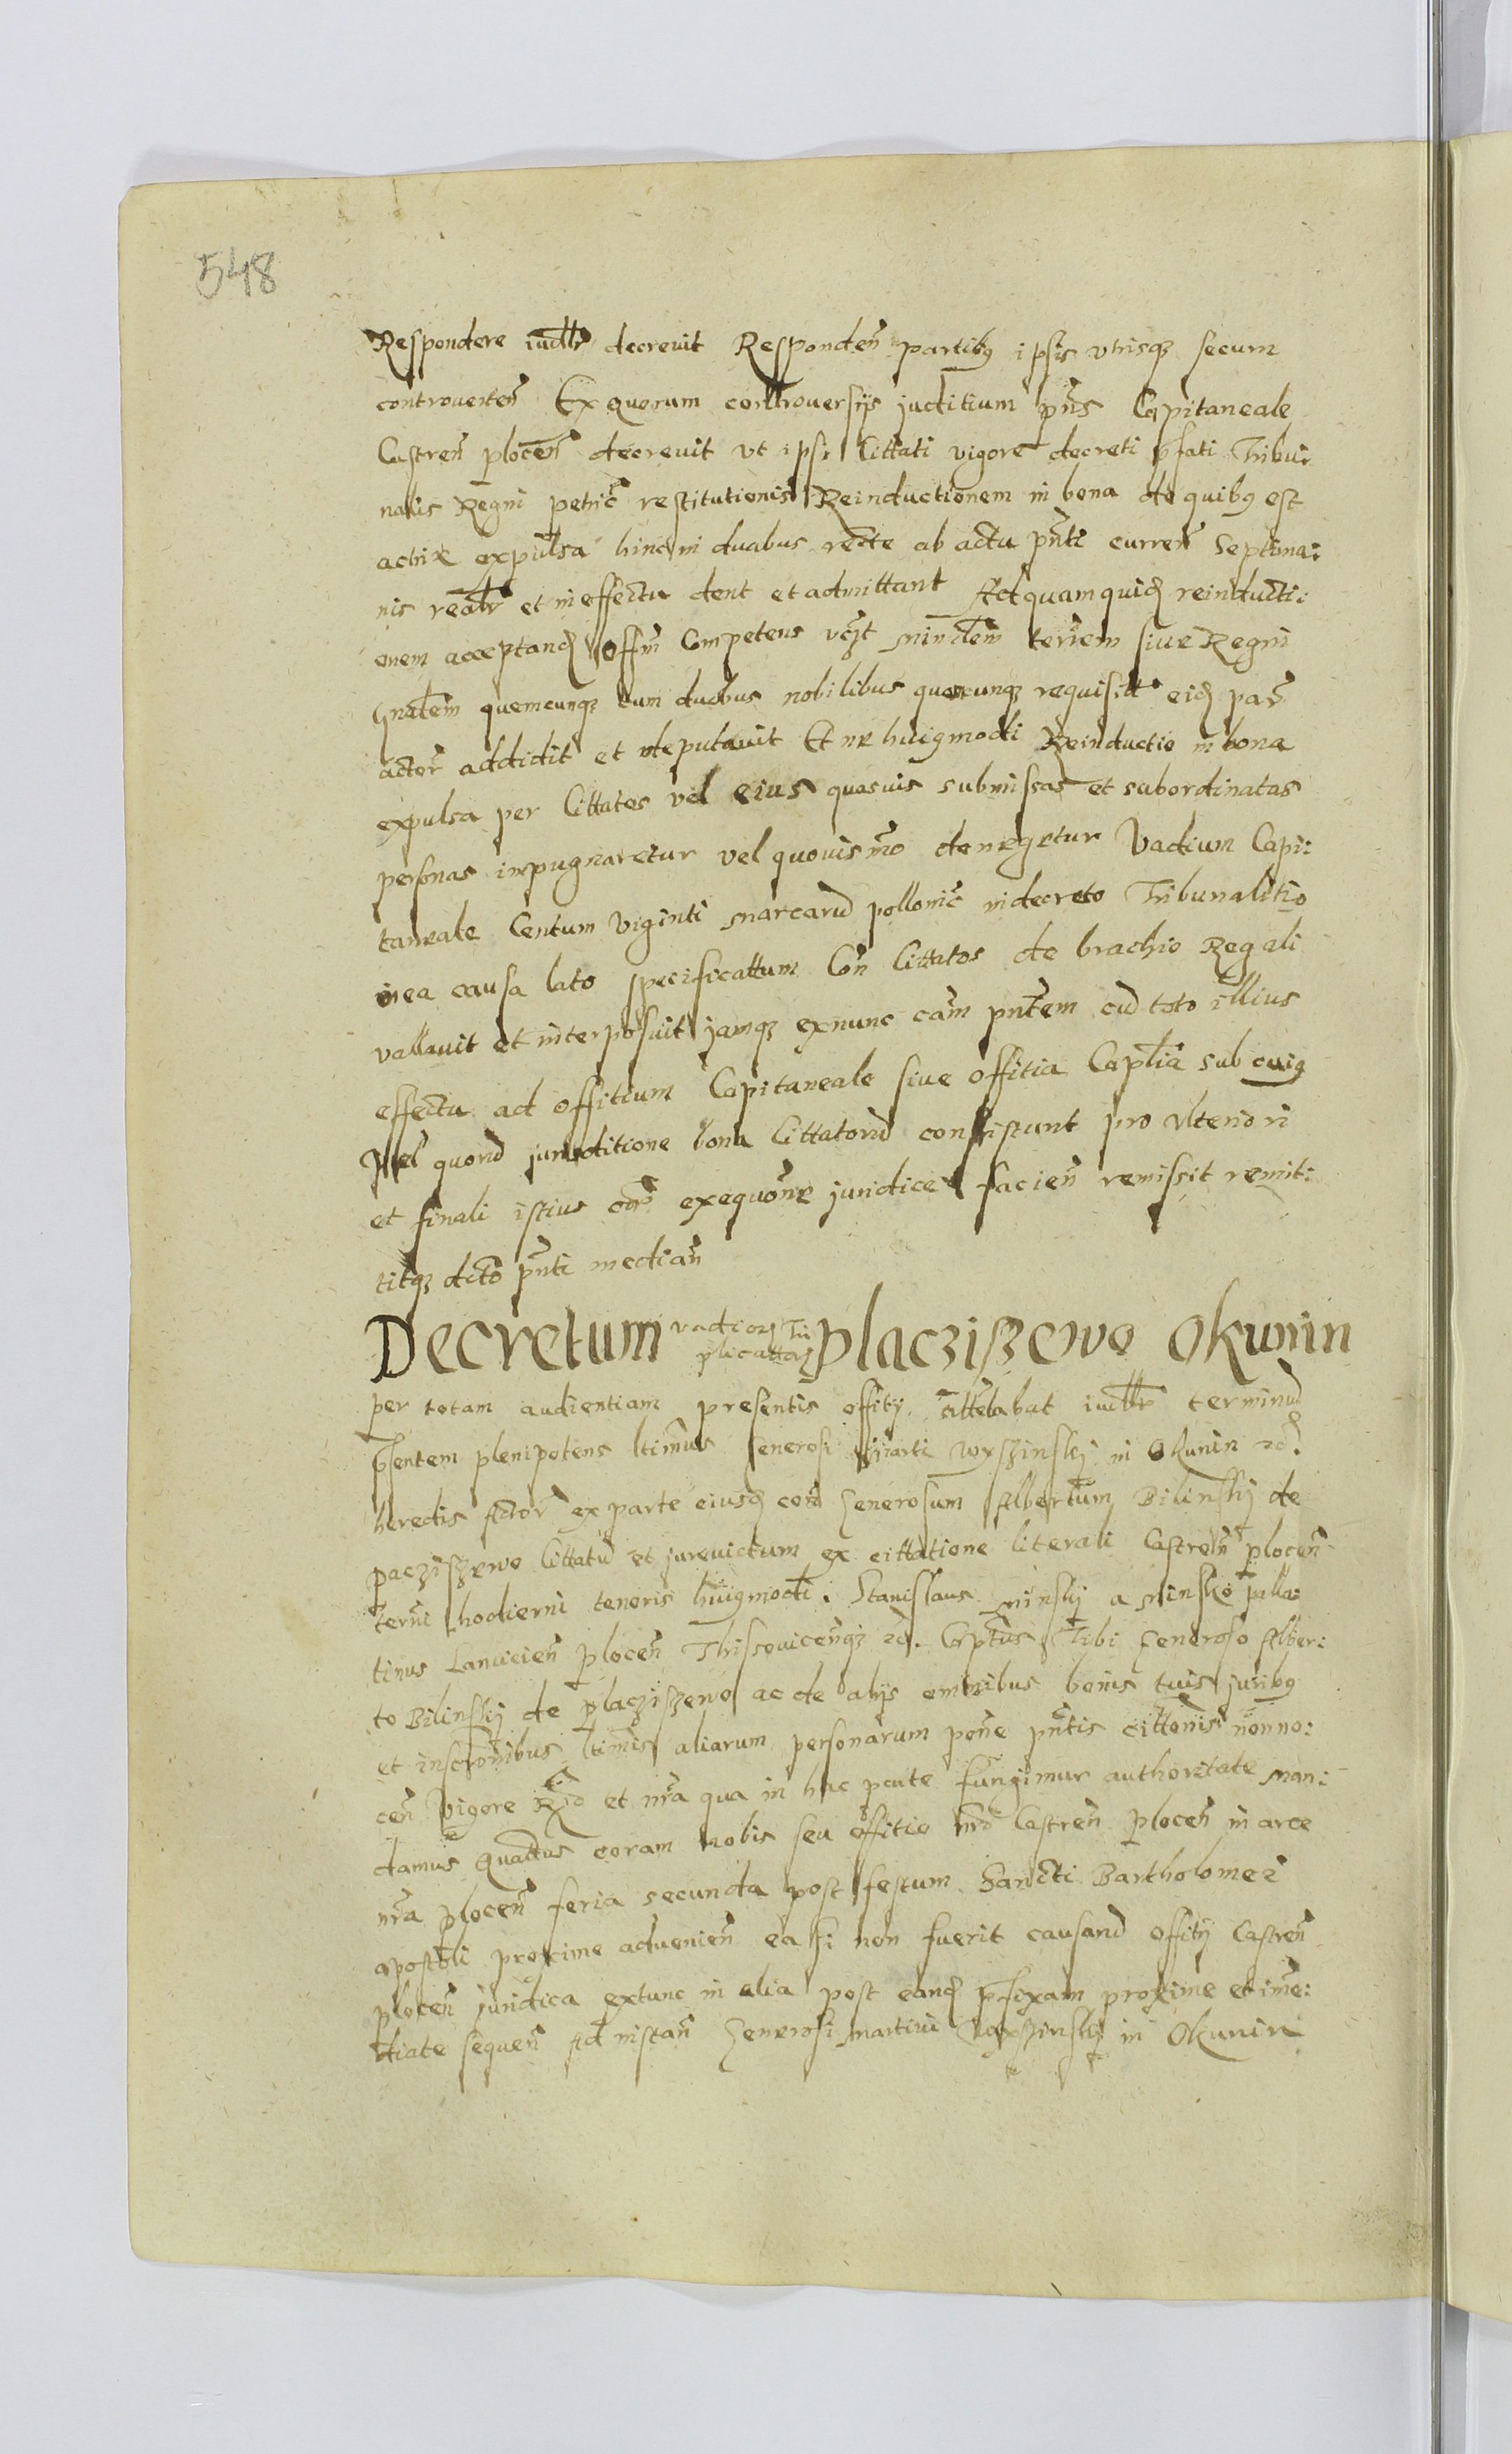 548
Respondere iudllr decreuit Responden partibq ipsis vtrisqz secum
controverten Ex quorum controversijs juditium pns Capitaneale
Castren plocen decreuit vt ipsi Cittati vigore decreti pfati Tribu:
nalis Regni petric restitutionis Reinductionem in bona de quibq est
actrix expulsa hinc in duabus recte ab actu pnti curren Septima:
nis realr et in effectu dent et admittant Ad quam quid reinducti:
onem acceptand offm Competens vczt minlem terrem siue Regni
Gnalem quemcunqz cum duobus nobilibus quoscunqz requisitt eid par
actor addidit et deputauit Et ne huigmodi Reinductio in bona
expulsa per Cittatos vel eius quasuis submissas et subordinatas
personas impugnaretur vel quouismo denegetur Vadium Capi:
taneale Centum Viginti marcaru pollonic in decreto Tribunalitio
in ea causa lato specificattum Con Cittatos de brachio Regali
vallauit et interposuit jamqz exnunc cam pntem cu toto illius
effectu ad offitium Capitaneale siue offitia Caplia sub cuiq
vel quoru jurisditione bona Cittatoru consistunt pro vlteriori
et finali istius cae exequone juridice facien remissit remit:
titqz dcto pnti median
Decretum vadiorz Tri
plicattorz placziszewo Okunin
per totam audientiam presentis offity attetabat iudllr terminu
psentem plenipotens ltimus Generosi Marti wyszinskj in Okunin zc.
heredis Actor ex parte eiusd con Generosum Albertum Bilinskj de
pacziszewo Cittatu et jurevictum ex cittatione literali Castren plocen
terni hodierni tenoris huigmodi. Stanislaus minskj a minsko palla:
tinus Lanicien plocen Thissouicenqz zc. Captus Tibi Generoso Alber:
to Bilinskij de placziszewo ac de alijs omnibus bonis tuis juribq
et inscronibus ltimis aliarum personarum pone pntis cittonis nonno:
cen Vigore Rio et nra qua in hac parte fungimur authoritate man:
damus Quattus coram nobis seu offitio nro Castren plocen in arce
nra plocen feria secunda post festum Sancti Bartholomei
apostoli proxime aduenien ea si non fuerit causaru offity Castren
plocen juridica extunc in alia post eand pfixam proxime et imme:
diate sequen Ad instan Generosi martini Wyszinskj in Okunin